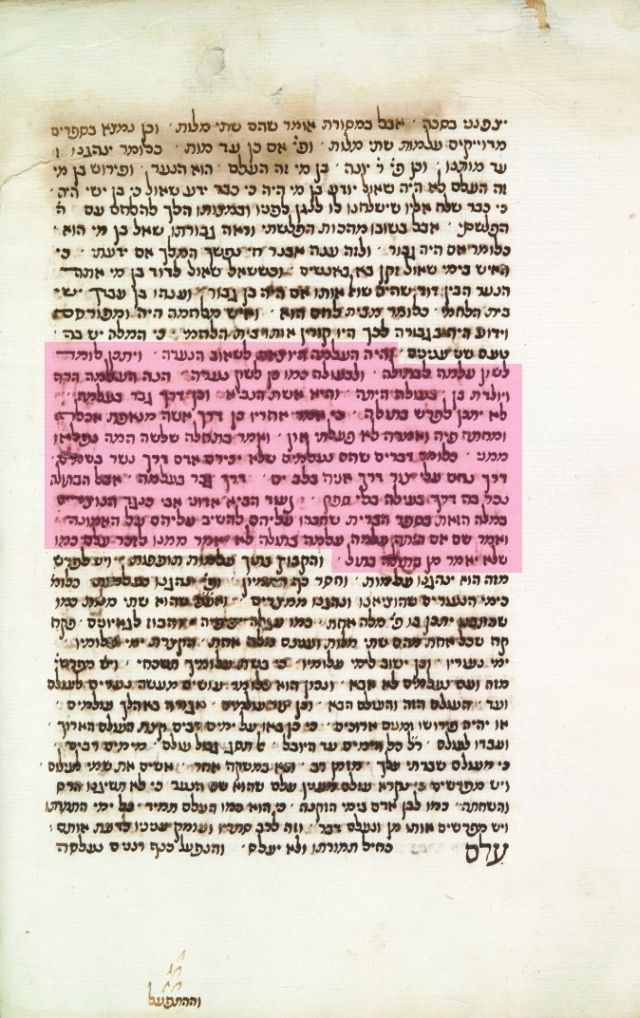 יצפננו בסכה אבל במסורת אומר שהם שתי מלות וכן נמצא בספרים
מדוייקים עלמות שתי מלות ופי' אם כן עד מות כלומר ינהגנו
עד מותנו וכן פי' ר' יונה בן מי זה העלם הוא הנער ופירוש בן מי
זה העלם לא היה שאול יודע בן מי היה כי כבר ידע שאול כי בן ישי היה
כי כבר שלח אליו שישלחנו לו לנגן לפניו ובמצותו הלך להלחם עם ה
הפלשתי אבל בשובו מהכות הפלשתי וראה גבורתו שאל בן מי הוא
כלומר אם היה גבור ולזה ענה אבנר חי נפשך המלך אם ידעתי כי
האיש בימי שאול זקן בא באנשים וכששאל שאול לדוד בן מי אתה
הנער הבין דוד אותו אם היה בן גבור וענהו בן עבדך ישי
בית הלחמי כלומר מבית לחם הוא ואיש מלחמה היה ומפורסם
וידוע היה בגבורה לכך היו קורין אותו בית הלחמי כי המלה יש בה
טעם והיה העלמה היוצאת לשאוב הנערה ויתכן לומר
לשון עלמה לבתולה ולבעולה כמו כן לשון נערה הנה העלמה הרה
ויולדת בן בעולה היתה והיא אשת הנביא וכן דרך גבר בעלמה
לא יתכן לפרש בתולה כי אמר אחריו כן דרך אשה מנאפת אכלה
ומחתה פיה ואמרה לא פעלתי און ואמר בתחלה שלשה המה נפלאו
ממני כלומר דברים שהם נעלמים שלא יכירם אדם דרך נשר בשמים
דרך נחש עלי צור דרך אניה בלב ים דרך גבר בעלמה אבל הבתולה
נכר בה דרך בעולה בלי ספק ועוד הביא אדוני אבי כנגד הנוצרים
במלה הזאת בספר הברית שחברו עליהם להשיב עליהם על האמונה
ואמר שם אם עלמה בתולה לא יאמר ממנו לזכר עלם כמו
שלא יאמר מן בתולה בתול והקבוץ בתוך עלמות תופפות ויש לפרש
מזה הוא ינהגנו עלמות וחסר כף ופי' ינהגנו כעלמות כלומר
כימי הנעורים שהוציאנו ונהגנו ממצרים שהוא שתי מלות כמו
שכתבנו יתכן בו פי' מלה אחת כמו פקח
קח שכל אחת מהם שתי מלות וענינם מלה אחת הקצרת ימי עלומיו
ימי נעוריו וכן ישוב לימי עלומיו כי בשת עלומיך תשכחי ויש מפרשי'
מזה ועם נעלמים לא אבא ונכון הוא כלומר עושים מעשה נערים לעולם
ועד העולם הזה והעולם הבא וכן צור עולמים אגורה באהלך עולמים
או יהיה פירושו ומעם ארוכים כי כן באו על ימים רבים קצת העולם הארוך
ועבדו לעולם ר"ל כל הימים עד היובל גבול עולם מימים רבים
כי מעולם שברתי עלך מזמן רב ובא במשקה אחר אשים את שמי לעילום
ויש מפרשים כי נקרא עולם מענין עלם שהוא שם הנער כי לא תשיגנו הדם
והשחתה כמו לבן אדם בימי הזקנה כי הוא כמו העלם תמיד על ימי התמדתו
ויש מפרשים אותו מן ונעלם דבר וזה לרב סתריו ועומק ענינו לדעת אותם
עלס כחיל תמורתו ולא יעלס והנפעל כנף רננים נעלסה
וההתפעל